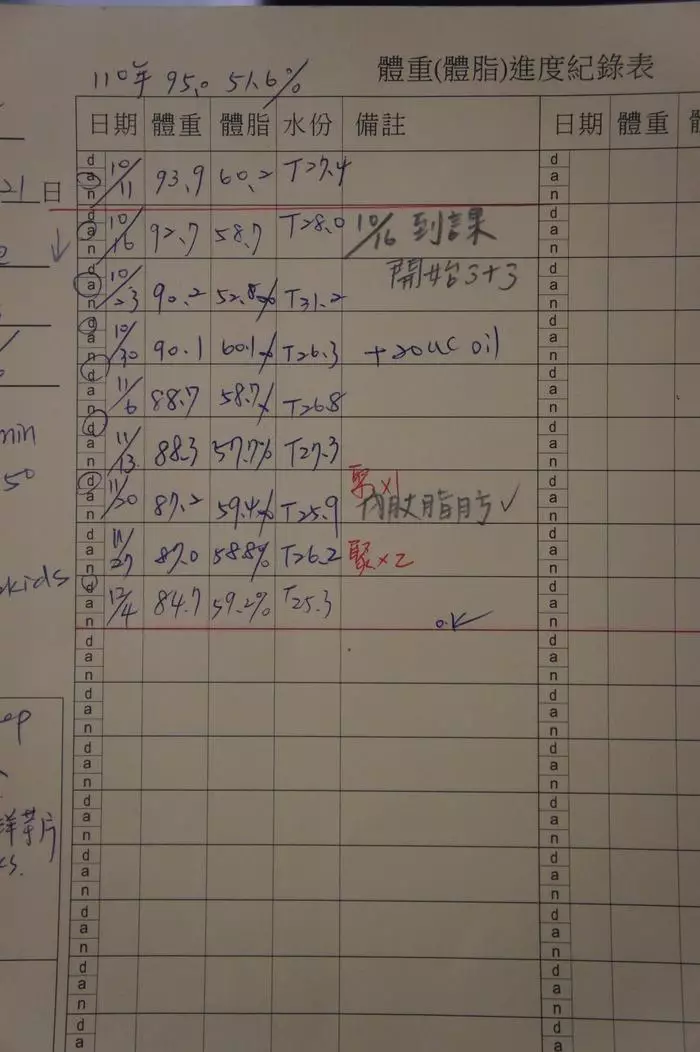 體重(體脂)進度紀錄表
110年 95.0 51.6%
日期 體重 體脂 水份 備註 日期 體重 體
d a n 10/11 93.9 60.2 T27.4
21 日
d a n 10/16 92.7 58.7 T28.0 10/16 到課
開始3+3
d a n 10/23 90.2 52.8% T31.2
d a n 10/30 90.1 60.1% T26.3 +20cc oil
d a n 11/6 88.7 58.7% T26.8
min
d a n 11/13 88.3 57.7% T27.3
50
聚x1
d a n 11/20 87.2 59.4% T25.9 內脏脂肪✓
d a n 11/27 87.0 58.8% T26.2 聚x2
kids
d a n 12/4 84.7 59.2% T25.3
o.k
d a n
d a n
ep
d a n
d a n
洋芋片
cs.
d a n
d a n
d a n
d a